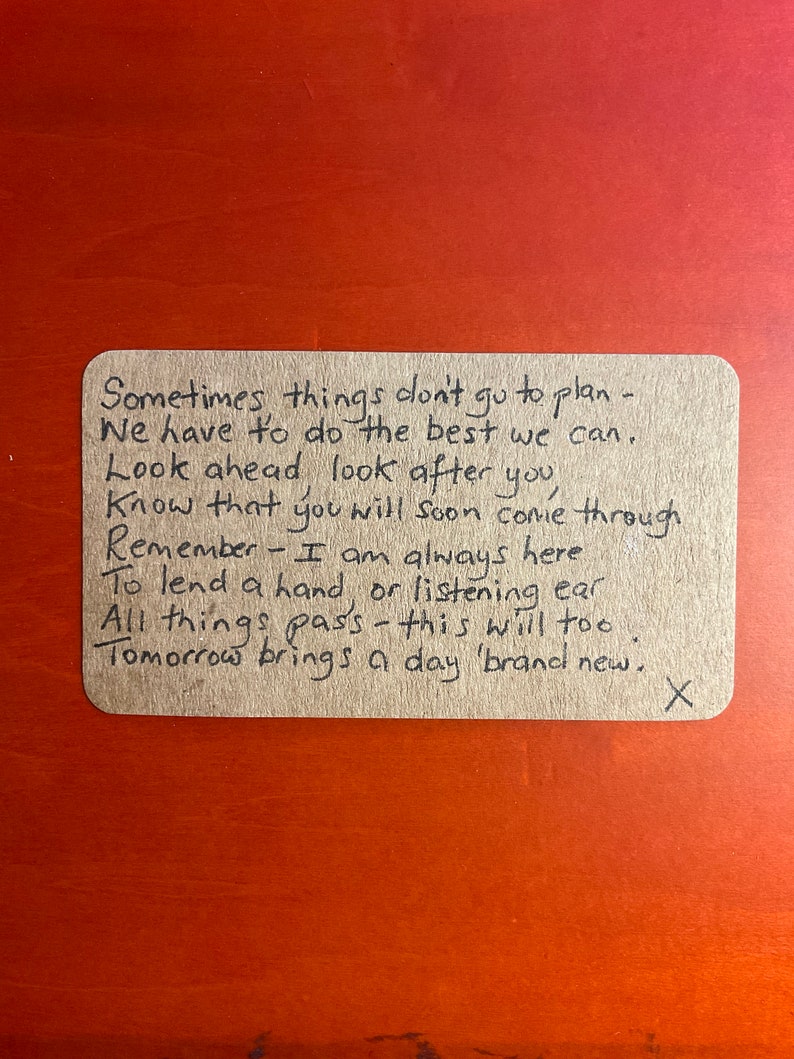 Sometimes, things don't go to plan -
We have to do the best we can.
Look ahead, look after you,
Know that you will soon come through
Remember - I am always here
To lend a hand, or listening ear
All things pass - this will too.
Tomorrow brings a day brand new.
X